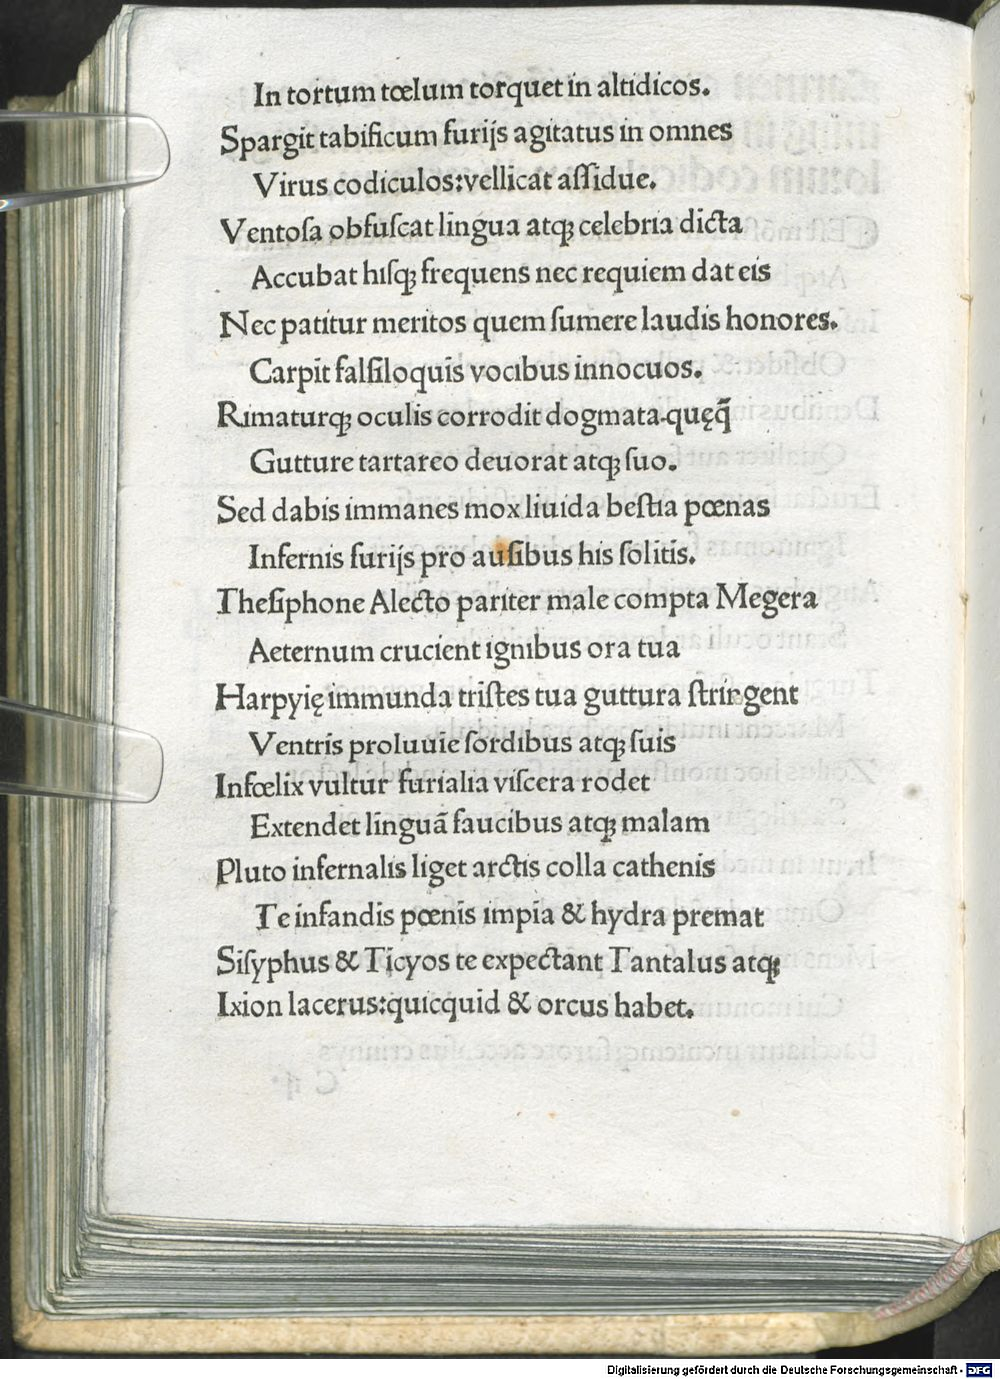 In tortum tœlum torquet in altidicos.
Spargit tabificum furijs agitatus in omnes
Virus codiculos:vellicat aſſidue.
Ventoſa obfuſcat lingua atqꝫ celebria dicta
Accubat hiſqꝫ frequens nec requiem dat eis
Nec patitur meritos quem ſumere laudis honores.
Carpit falſiloquis vocibus innocuos.
Rimaturqꝫ oculis corrodit dogmata.quęq̃
Gutture tartareo deuorat atqꝫ ſuo.
Sed dabis immanes mox liuida beſtia pœnas
Infernis furijs pro auſibus his ſolitis.
Theſiphone Alecto pariter male compta Megera
Aeternum crucient ignibus ora tua
Harpyię immunda triſtes tua guttura ſtringent
Ventris proluuie ſordibus atqꝫ ſuis
Infœlix vultur furialia viſcera rodet
Extendet linguã faucibus atqꝫ malam
Pluto infernalis liget arctis colla cathenis
Te infandis pœnis impia & hydra premat
Siſyphus & Ticyos te expectant Tantalus atqꝫ
Ixion lacerus:quicquid & orcus habet.
Digitalisierung gefördert durch die Deutsche Forschungsgemeinschaft - DFG